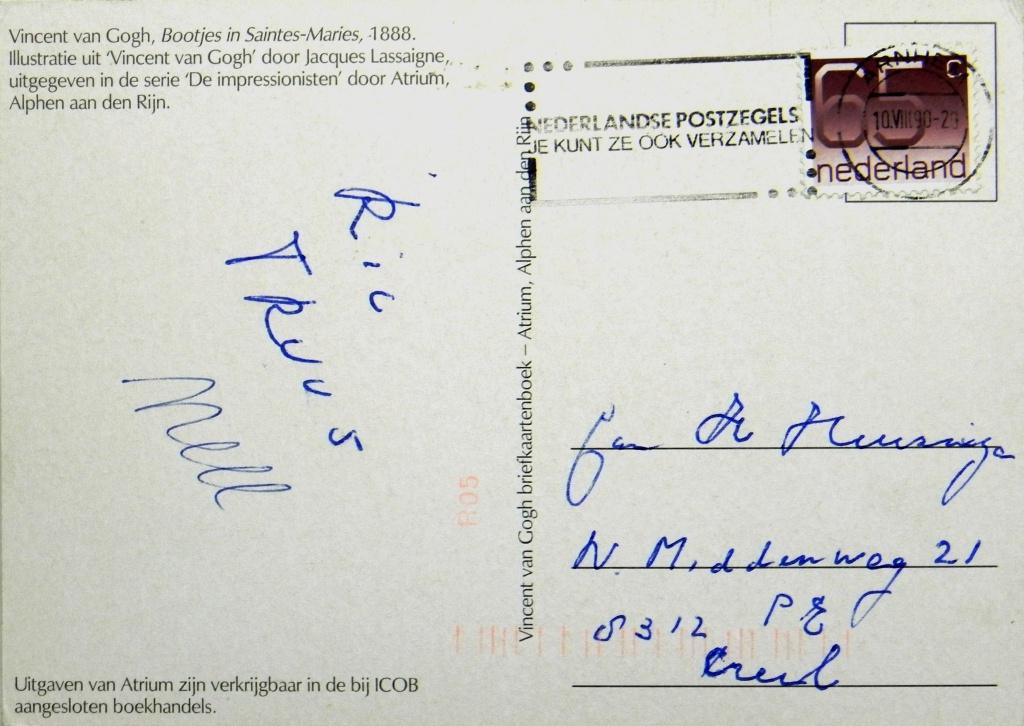 Vincent van Gogh, Bootjes in Saintes-Maries, 1888.
Illustratie uit 'Vincent van Gogh' door Jacques Lassaigne,
uitgegeven in de serie 'De impressionisten' door Atrium,
Alphen aan den Rijn.
NEDERLANDSE POSTZEGELS
JE KUNT ZE OOK VERZAMELEN
ARNHEM
65 c
10.VIII.90-2
nederland
Ric
Truus
Nell
Vincent van Gogh briefkaartenboek – Atrium, Alphen aan den Rijn
R05
Jan
Huizinga
N. Middenweg 21
8312 PE
Creil
Uitgaven van Atrium zijn verkrijgbaar in de bij ICOB
aangesloten boekhandels.